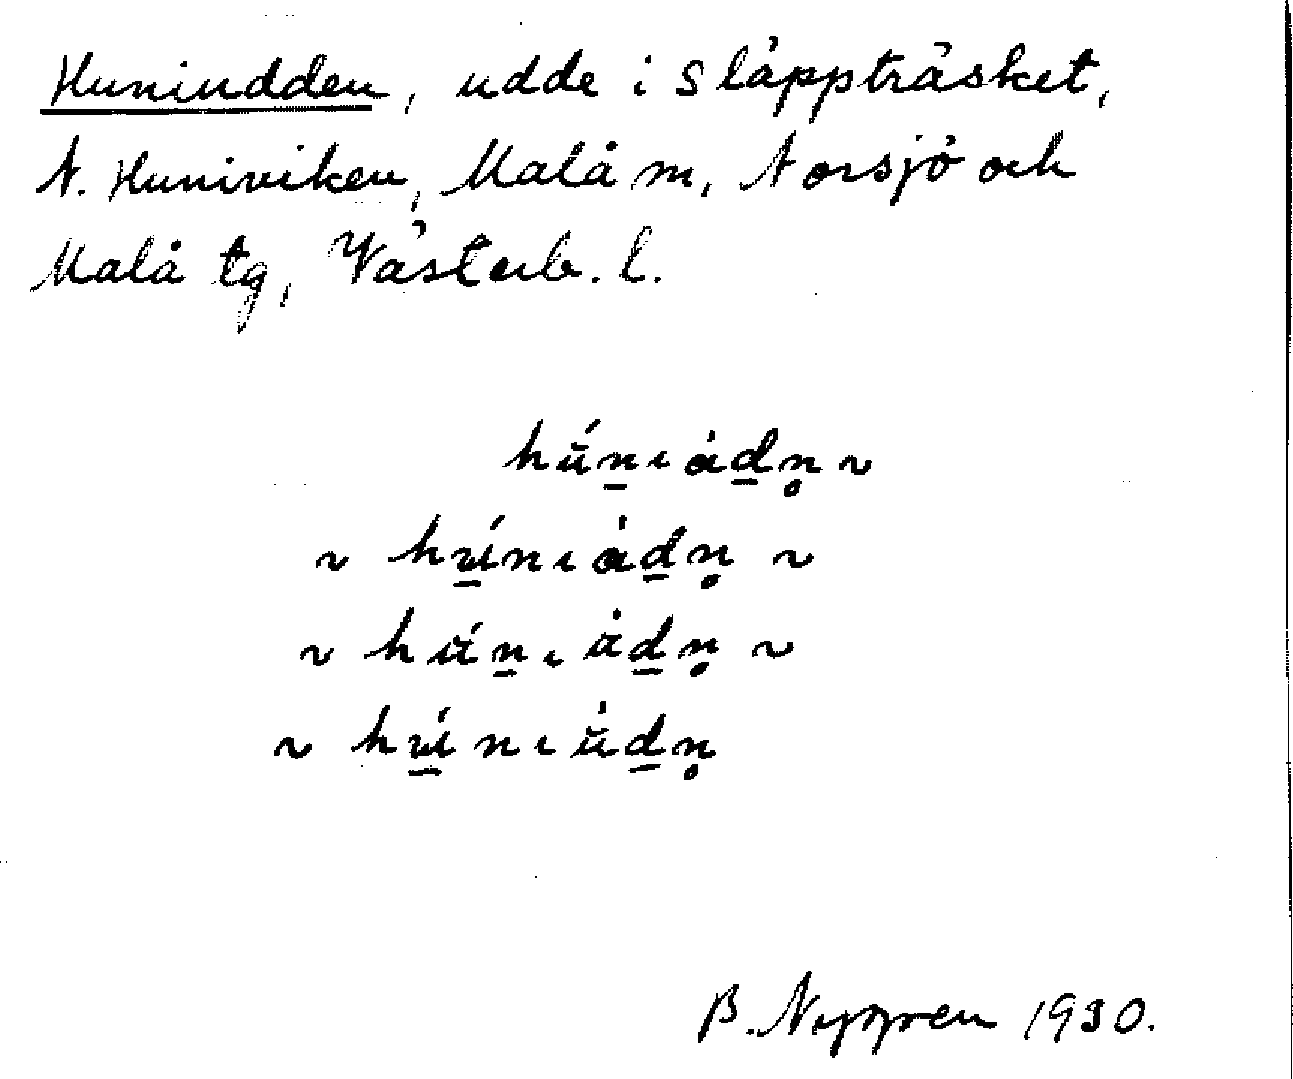 Huniudden, udde i Släppträsket,
N. Huniviken, Malå sn, Norsjö och
Malå tg, Västerb. l.
hŭ́n̲ɩȧd̲n̥ ~
~ hú̲nɩȧd̲n̥ ~
~ hŭ́n̲ɩȧd̲n̥ ~
~ hú̲nɩŭ̇d̲n̥
B. Nygren 1930.